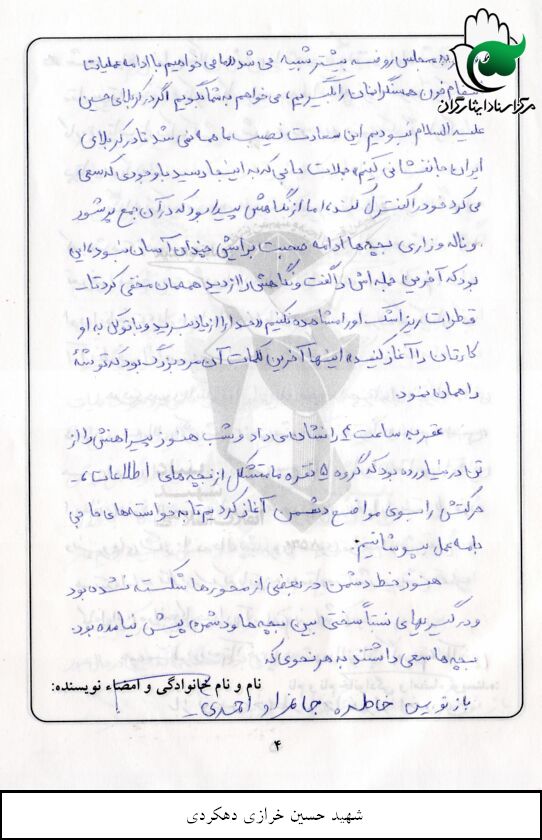 مرکز اسناد ایثارگران
به مجلس روضه بیشتر شبیه می شد «ما می خواهیم با ادامه عملیات
انتقام خون همسنگرانمان را بگیریم، می خواهم به شما بگویم اگر در کربلای حسین
علیه السلام نبودیم این سعادت نصیب ما همه می شد تا در کربلای
ایران جانفشانی کنیم» جملات حاجی که به اینجا رسید با وجودی که سعی
می کرد خود را کنترل کند، اما از نگاهش پیدا بود که در آن جمع پر شور
و ناله و زاری بچه ها ادامه صحبت برایش چندان آسان نبود، این
بود که آخرین جمله اش را گفت و نگاهش را از دید همه مان مخفی کرد تا
قطرات ریز اشک او را مشاهده نکنیم «خدا را از یاد نبرید و با توکل به او
کارتان را آغاز کنید» اینها آخرین کلمات آن مرد بزرگ بود که توشهٔ
راهمان نمود.
عقربه ساعت ۴ را نشان می داد و شب هنوز پیراهنش را از
تن در نیاورده بود که گروه ۵ نفره ما متشکل از بچه های اطلاعات،
حرکتش را بسوی مواضع دشمن آغاز کردیم تا به خواسته های حاجی
جامه عمل بپوشانیم.
هنوز خط دشمن در بعضی از محورها شکسته نشده بود
و درگیریهای نسبتاً سختی بین بچه ها و دشمن پیش نیامده بود.
بچه ها سعی داشتند به هر نحوی که
نام و نام خانوادگی و امضاء نویسنده:
باز نویس خاطره: جانمراد احمدی
۴
شهید حسین خرازی دهکردی